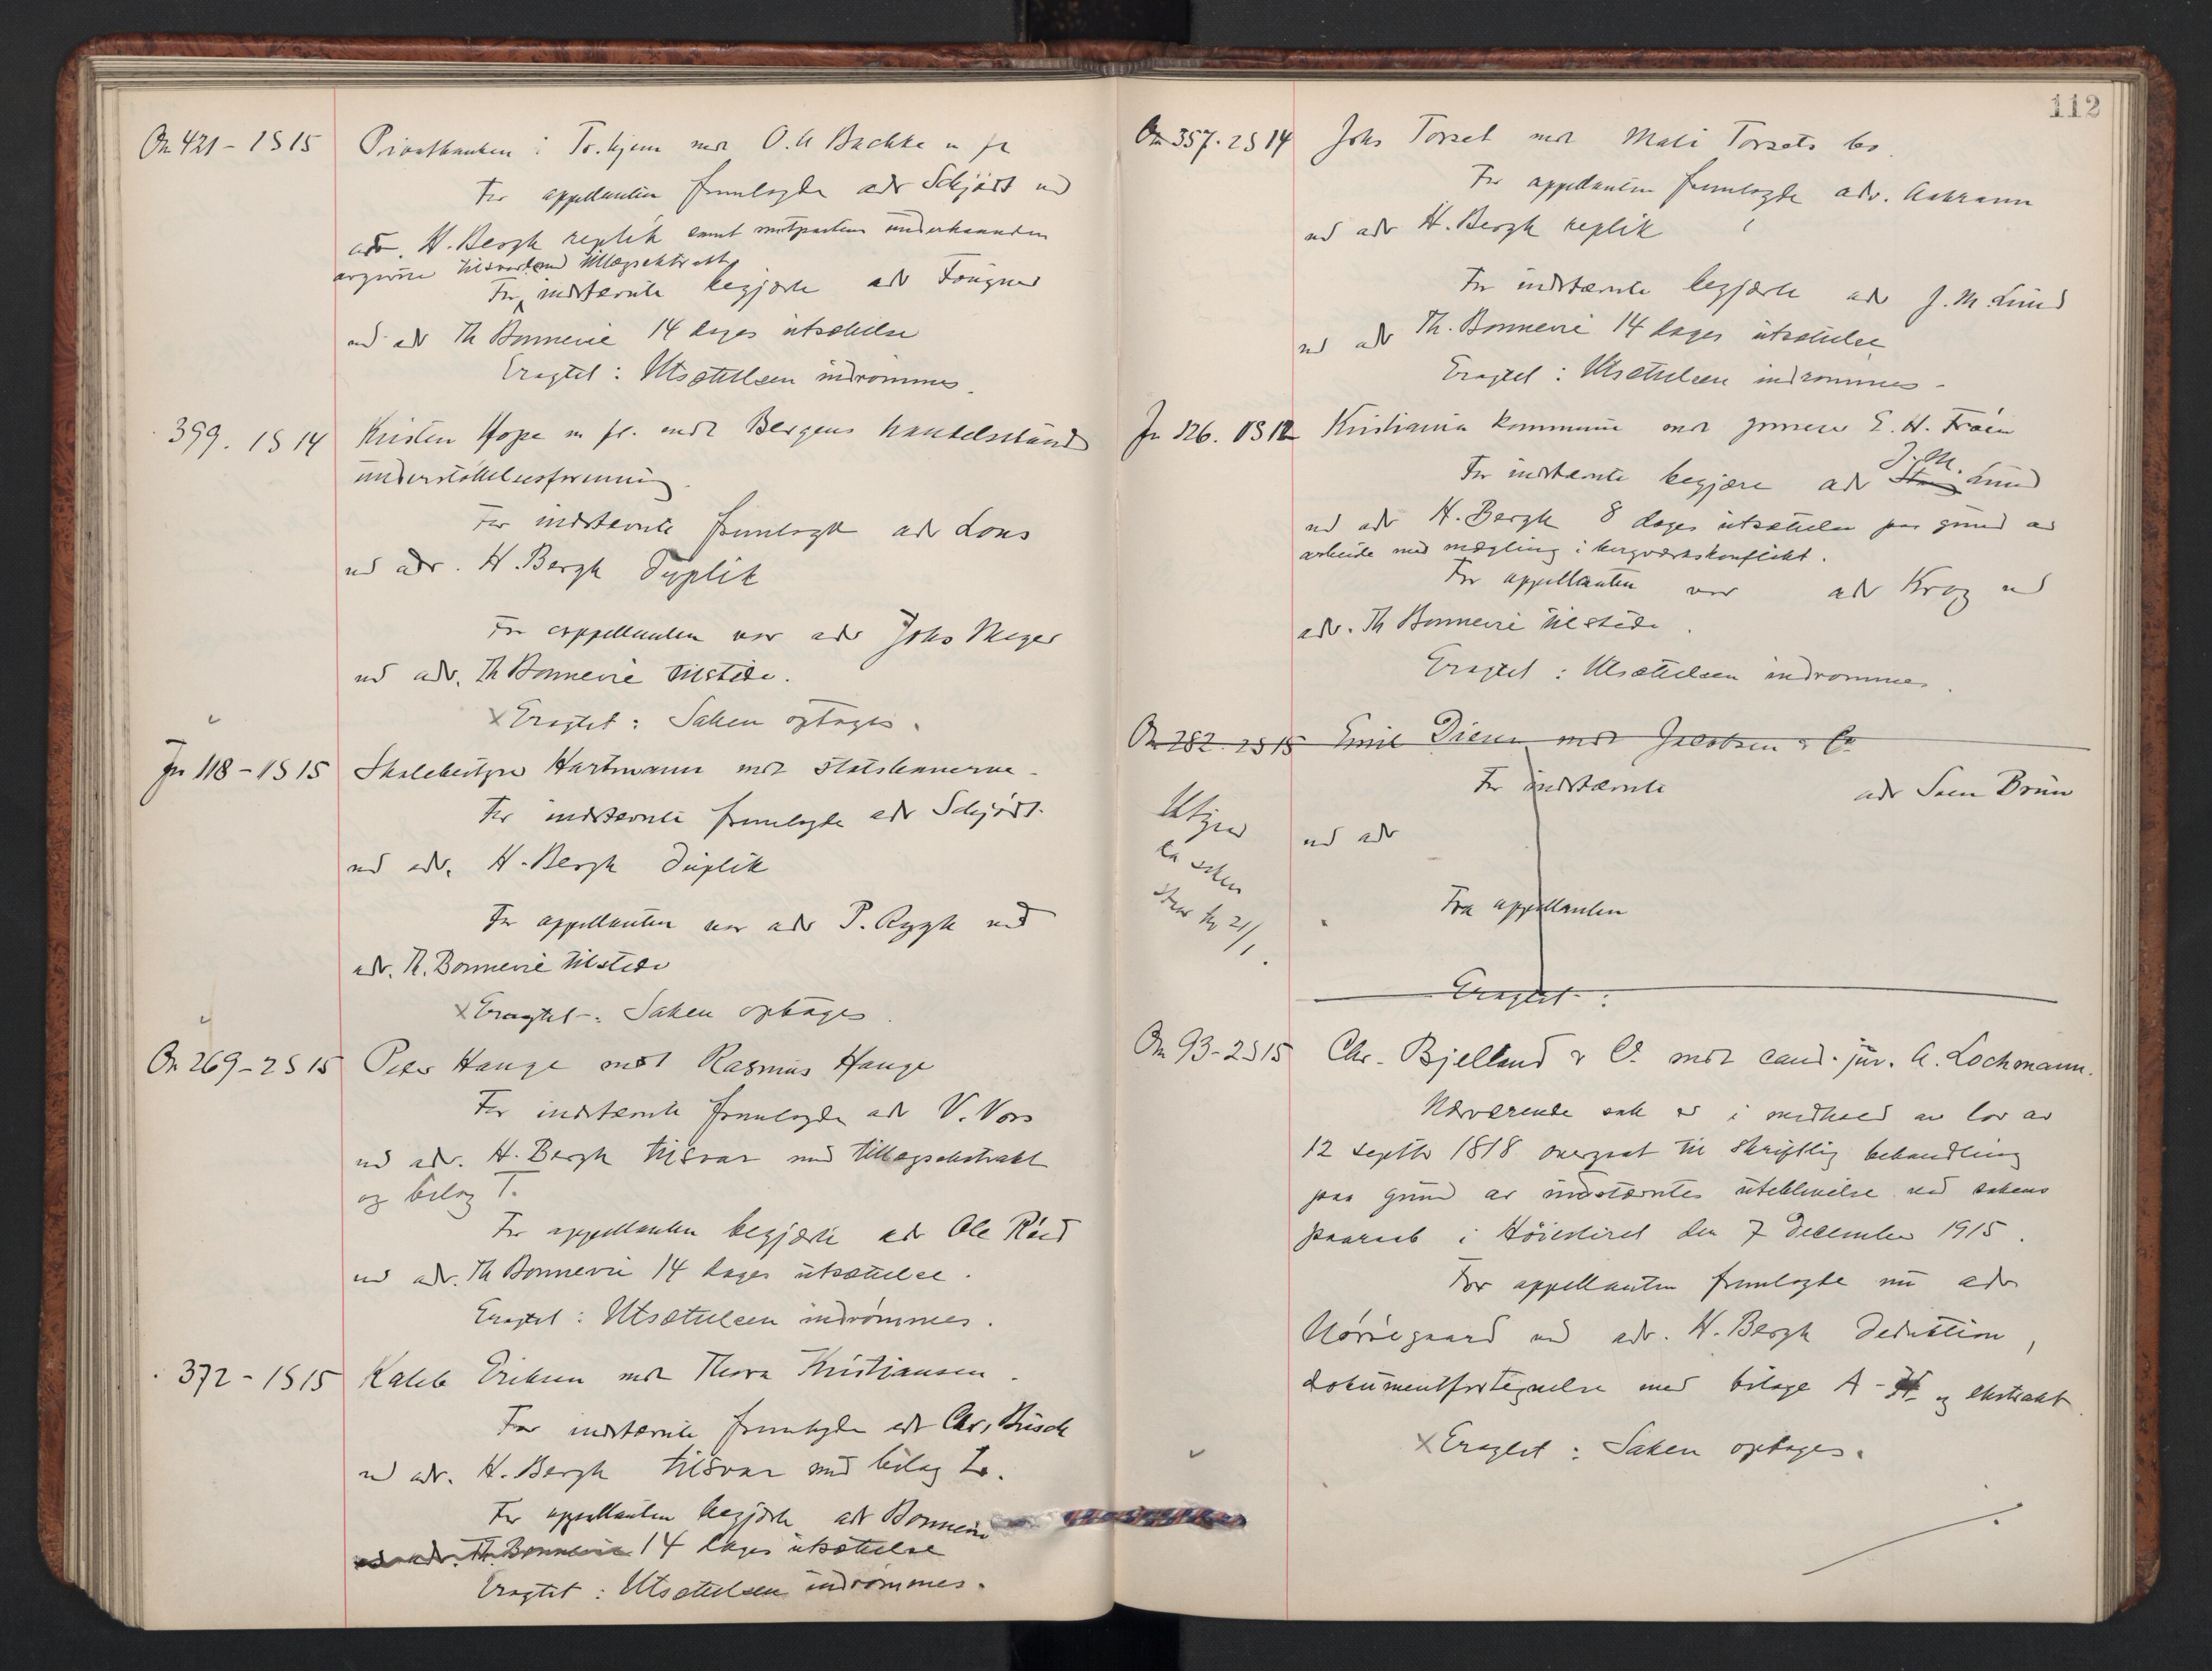 On 421 - 1 S 15 Privatbanken i Tr.hjem mot O. A Bachke m fl
For appellanten fremlagde adv Schjødt ved
adv. H. Bergh replik samt motpartens underhaanden
avgivne tilsvar med tillægsekstrakt
For indstevnte begjærte adv Fougner
ved adv Th Bonnevie 14 dages utsættelse
Eragtet : Utsættelsen indrømmes.
399. 1 S 14 Kristen Hope m fl. mot Bergens handelsstands
understøttelsesforening.
For indstevnte fremlagde adv Lous
ved adv. H Bergh Duplik
For appellanten var adv Johs Meyer
ved adv. Th Bonnevie tilstede.
x Eragtet : Saken optages.
Jn 118 - 1 S 15 Skolebestyrer Hartmann mot Statsbanerne.
For indstevnte fremlagde adv Schjødt
ved adv. H. Bergh Duplik
For appellanten var adv P. Rygh ved
adv. Th. Bonnevie tilstede
x Eragtet : Saken optages.
On 269 - 2 S 15 Peter Hauge mot Rasmus Hauge
For indstevnte fremlagde adv V. Voss
ved adv. H. Bergh tilsvar med tillægsekstrakt
og bilag T.
For appellanten begjærte adv Ole Røed
ved adv. Th Bonnevie 14 dages utsættelse.
Eragtet : Utsættelsen indrømmes.
372 - 1 S 15 Kaleb Eriksen mot Thora Kristiansen.
For indstevnte fremlagde adv Chr. Busch
ved adv. H. Bergh tilsvar med bilag
For appellanten begjærte adv Bonnevie
ved adv. Th. Bonnevie 14 dages utsættelse
Eragtet : Utsættelsen indrømmes.
112
On 357. 2 S 14 Johs Torset mot Mali Torsets bo.
For appellanten fremlagde adv. Aakrann
ved adv H. Bergh replik
For indstevnte begjærte adv J. M. Lund
ved adv Th. Bonnevie 14 dages utsættelse
Eragtet : Utsættelsen indrømmes.
Jn 126. Kristiania kommune mot E. H.
For indstevnte begjære adv J. M. Lund
ved adv H. Bergh 8 dages utsættelse paa grund av
arbeide med mægling i bergverkskonflikt.
For appellanten var adv Krog ved
adv. Th Bonnevie tilstede.
Eragtet : Utsættelsen indrømmes.
On 282. 2 S 15 Emil Diesen mot Jacobsen & Co
For indstevnte adv Sven Bruun
ved adv
For appellanten
Eragtet :
Utgaar
21/1.
On 93 - 2 S 15 Chr. Bjelland & Co. mot cand. jur. A. Lochmann.
Nærværende sak er i medhold av lov av
12 septbr 1818 overgaat til skriftlig behandling
paa grund av indstevntes uteblivelse ved sakens
paaraab i Höiesteret den 7 December 1915.
For appellanten fremlagde nu adv
Nørregaard ved adv. H. Bergh Deduktion,
dokumentfortegnelse med bilage A - H og ekstrakt.
x Eragtet : Saken optages.